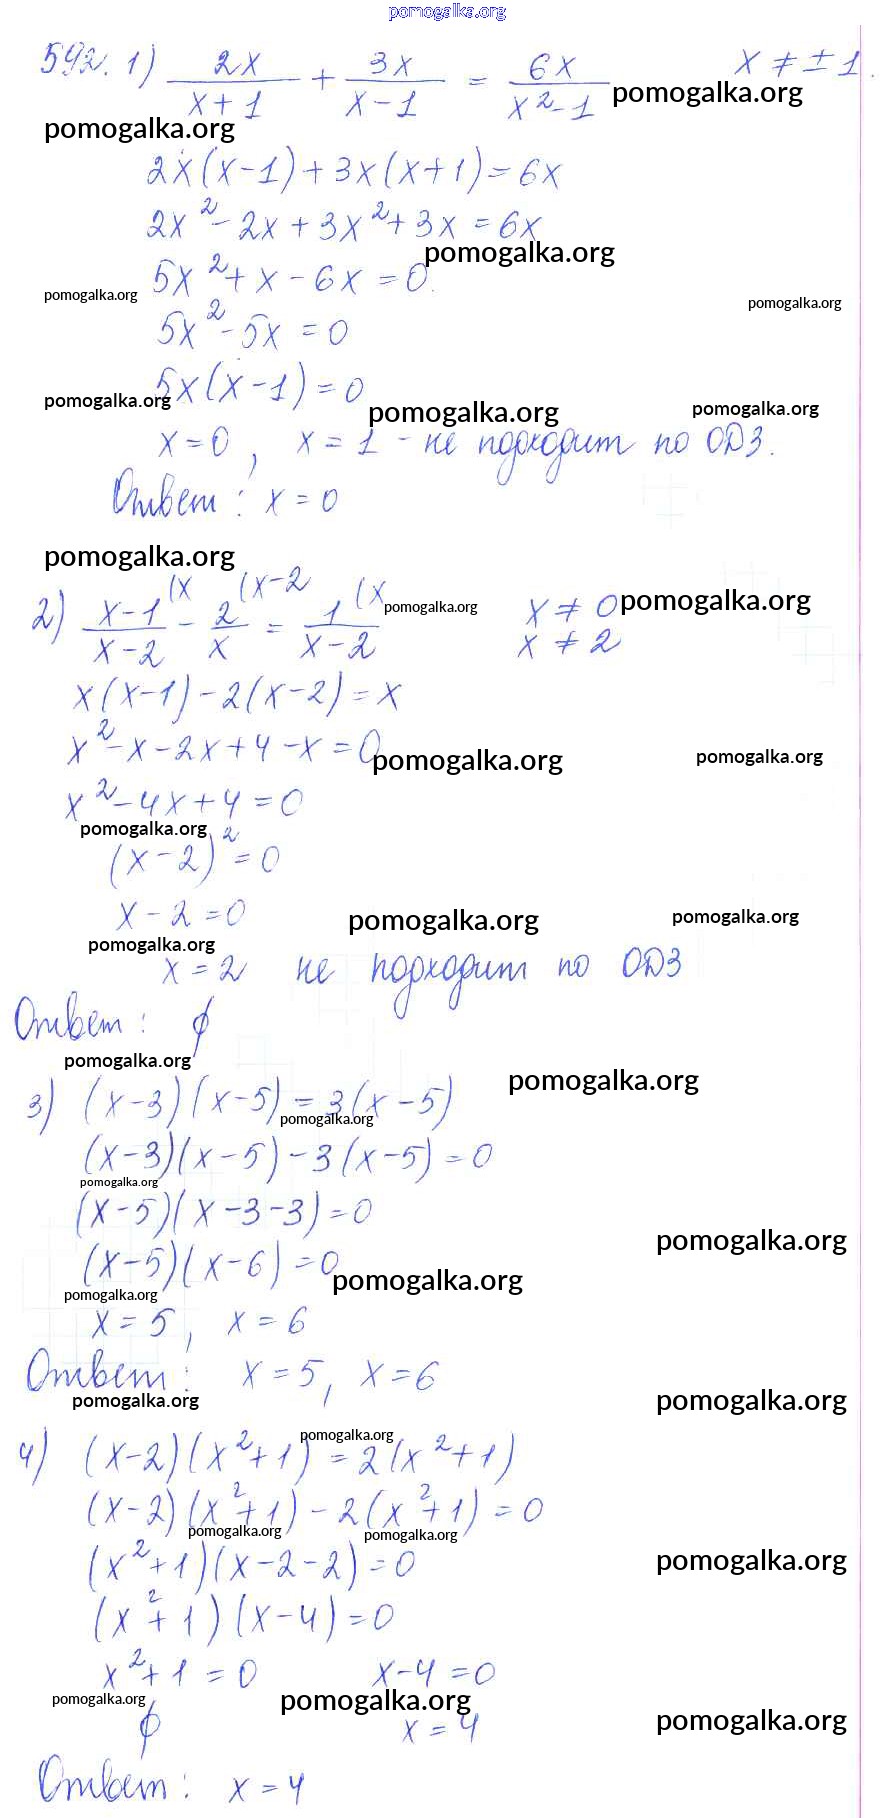 pomogalka.org
592. 1) 2x/(x+1) + 3x/(x-1) = 6x/(x²-1) x ≠ ±1
pomogalka.org
pomogalka.org
2x(x-1)+3x(x+1)=6x
2x²-2x+3x²+3x=6x
pomogalka.org
5x²+x-6x=0
pomogalka.org pomogalka.org
5x²-5x=0
5x(x-1)=0
pomogalka.org pomogalka.org pomogalka.org
x=0, x=1 - не подходит по ОДЗ.
Ответ: x=0
pomogalka.org
2) (x-1)/(x-2) (x - 2/x (x-2 = 1/(x-2) (x x ≠ 0
pomogalka.org pomogalka.org
x ≠ 2
x(x-1)-2(x-2)=x
x²-x-2x+4-x=0
pomogalka.org pomogalka.org
x²-4x+4=0
pomogalka.org
(x-2)²=0
x-2=0
pomogalka.org pomogalka.org
pomogalka.org
x=2 не подходит по ОДЗ
Ответ: ϕ
pomogalka.org
pomogalka.org
3) (x-3)(x-5)=3(x-5)
pomogalka.org
(x-3)(x-5)-3(x-5)=0
pomogalka.org
(x-5)(x-3-3)=0
pomogalka.org
(x-5)(x-6)=0
pomogalka.org
pomogalka.org
x=5, x=6
Ответ: x=5, x=6
pomogalka.org pomogalka.org
4) (x-2)(x²+1)=2(x²+1)
pomogalka.org
(x-2)(x²+1)-2(x²+1)=0
pomogalka.org pomogalka.org
(x²+1)(x-2-2)=0
pomogalka.org
(x²+1)(x-4)=0
x²+1=0 x-4=0
pomogalka.org pomogalka.org
ϕ x=4
pomogalka.org
Ответ: x=4